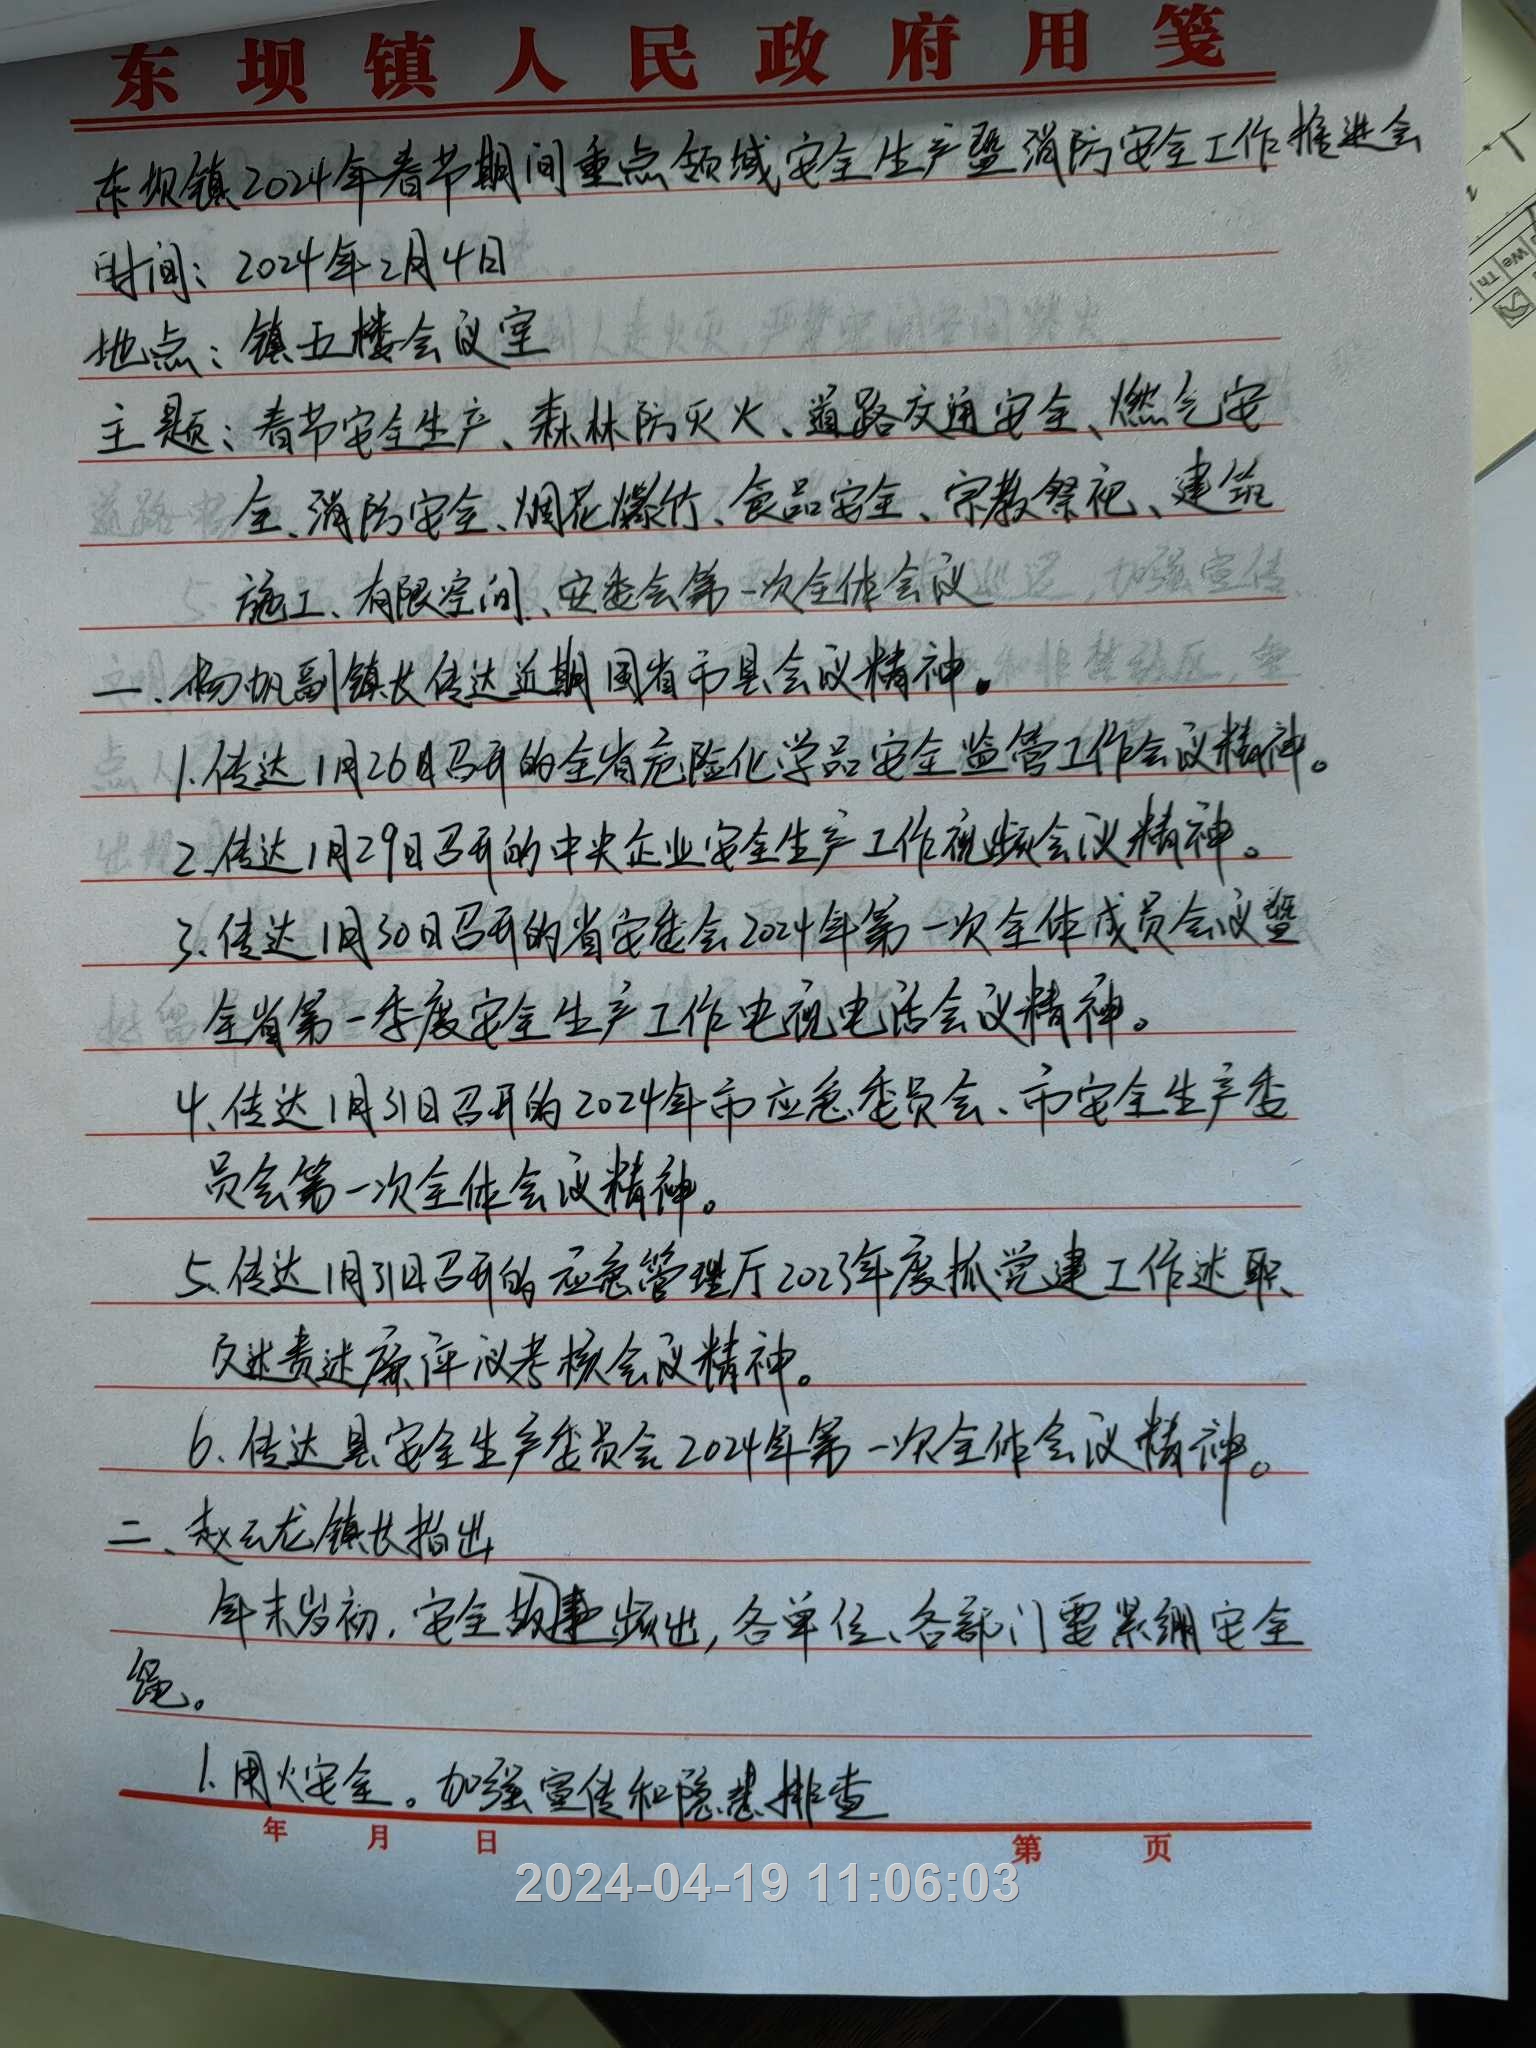 东坝镇人民政府用笺
东坝镇2024年春节期间重点领域安全生产暨消防安全工作推进会
时间：2024年2月4日
地点：镇五楼会议室
主题：春节安全生产、森林防灭火、道路交通安全、燃气安
全、消防安全、烟花爆竹、食品安全、宗教祭祀、建筑
施工、有限空间、安委会第一次全体会议
一、杨帆副镇长传达近期国省市县会议精神。
1.传达1月26日召开的全省危险化学品安全监管工作会议精神。
2.传达1月29日召开的中央企业安全生产工作视频会议精神。
3.传达1月30日召开的省安委会2024年第一次全体成员会议暨
全省第一季度安全生产工作电视电话会议精神。
4.传达1月31日召开的2024年市应急委员会、市安全生产委
员会第一次全体会议精神。
5.传达1月31日召开的应急管理厅2023年度抓党建工作述职、
及述责述廉评议考核会议精神。
6.传达县安全生产委员会2024年第一次全体会议精神。
二、赵云龙镇长指出
年末岁初，安全故事频出，各单位、各部门要紧绷安全
绳。
1.用火安全。加强宣传和隐患排查
年 月 日 第 页
2024-04-19 11:06:03
We
Th